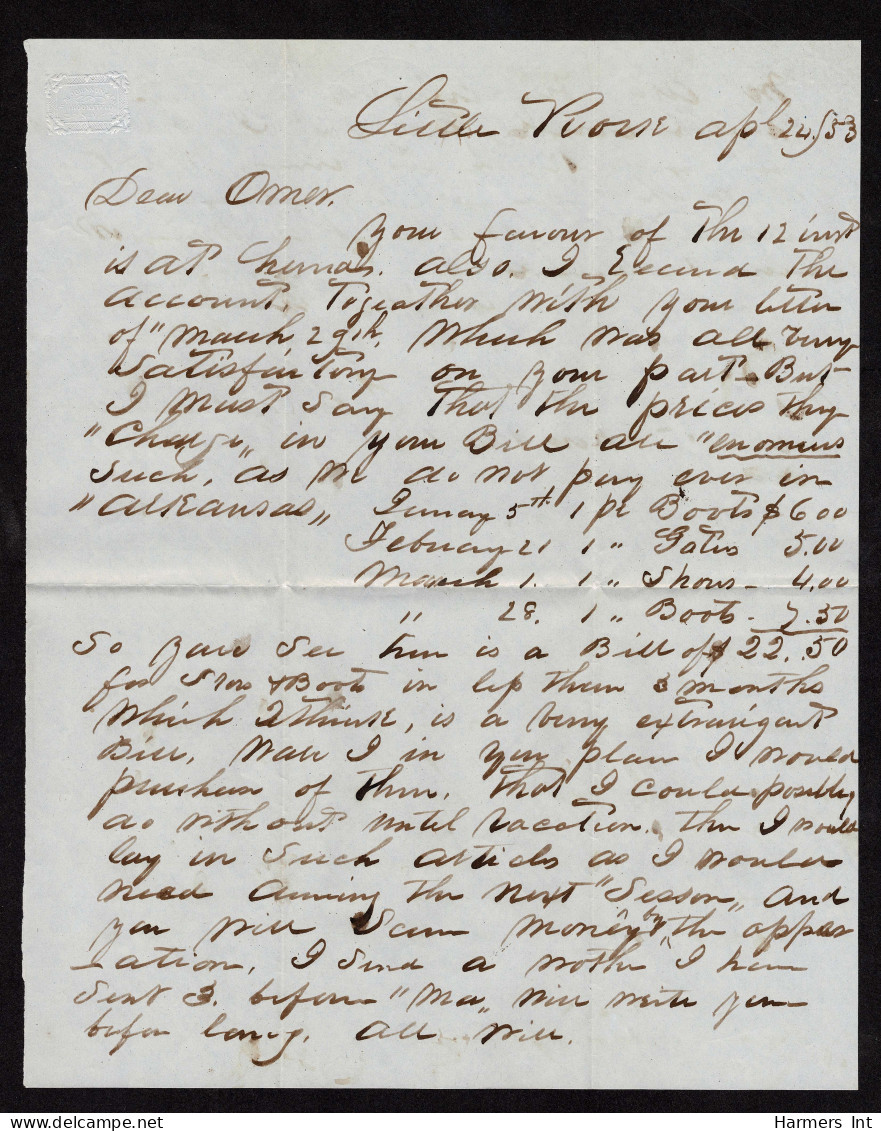 Little Rock apl 24/53
Dear Omer.
your favour of the 12 inst
is at hand. also. I Recived the
account, Together with your letter
of "March 29th. Which was all very
Satisfactory on your part - But
I must Say that the prices they
"Charge" in your Bill are "enomeus
Such, as we do not pay ever in
"Arkansas" 5th. 1 pr Boots $6.00
February 21 1 " Gaters 5.00
March 1. 1 " Shous - 4.00
" 28. 1 " Boots - 7.50
So you See here is a Bill of $22.50
for Shos & Boots in less then 3 months
Which I think, is a very extravigant
Bill, Ware I in your place I would
purchase of them. that I could possibly
do without until vacation. then I would
lay in Such articles as I would
need during the next "Season" and
you will Save money by "the opper
-ation. I Send a nother I have
Sent 3. before "Ma" will write you
before long. all well.
Harmers Int